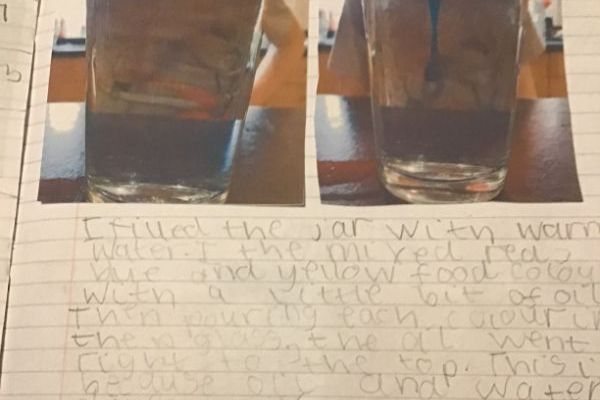 I filled the jar with warm
water. I the mixed red,
blue and yellow food colou
with a little bit of oil
Then pouring each colour in
the glass. the oil went
right to the top. This i
because oil and water